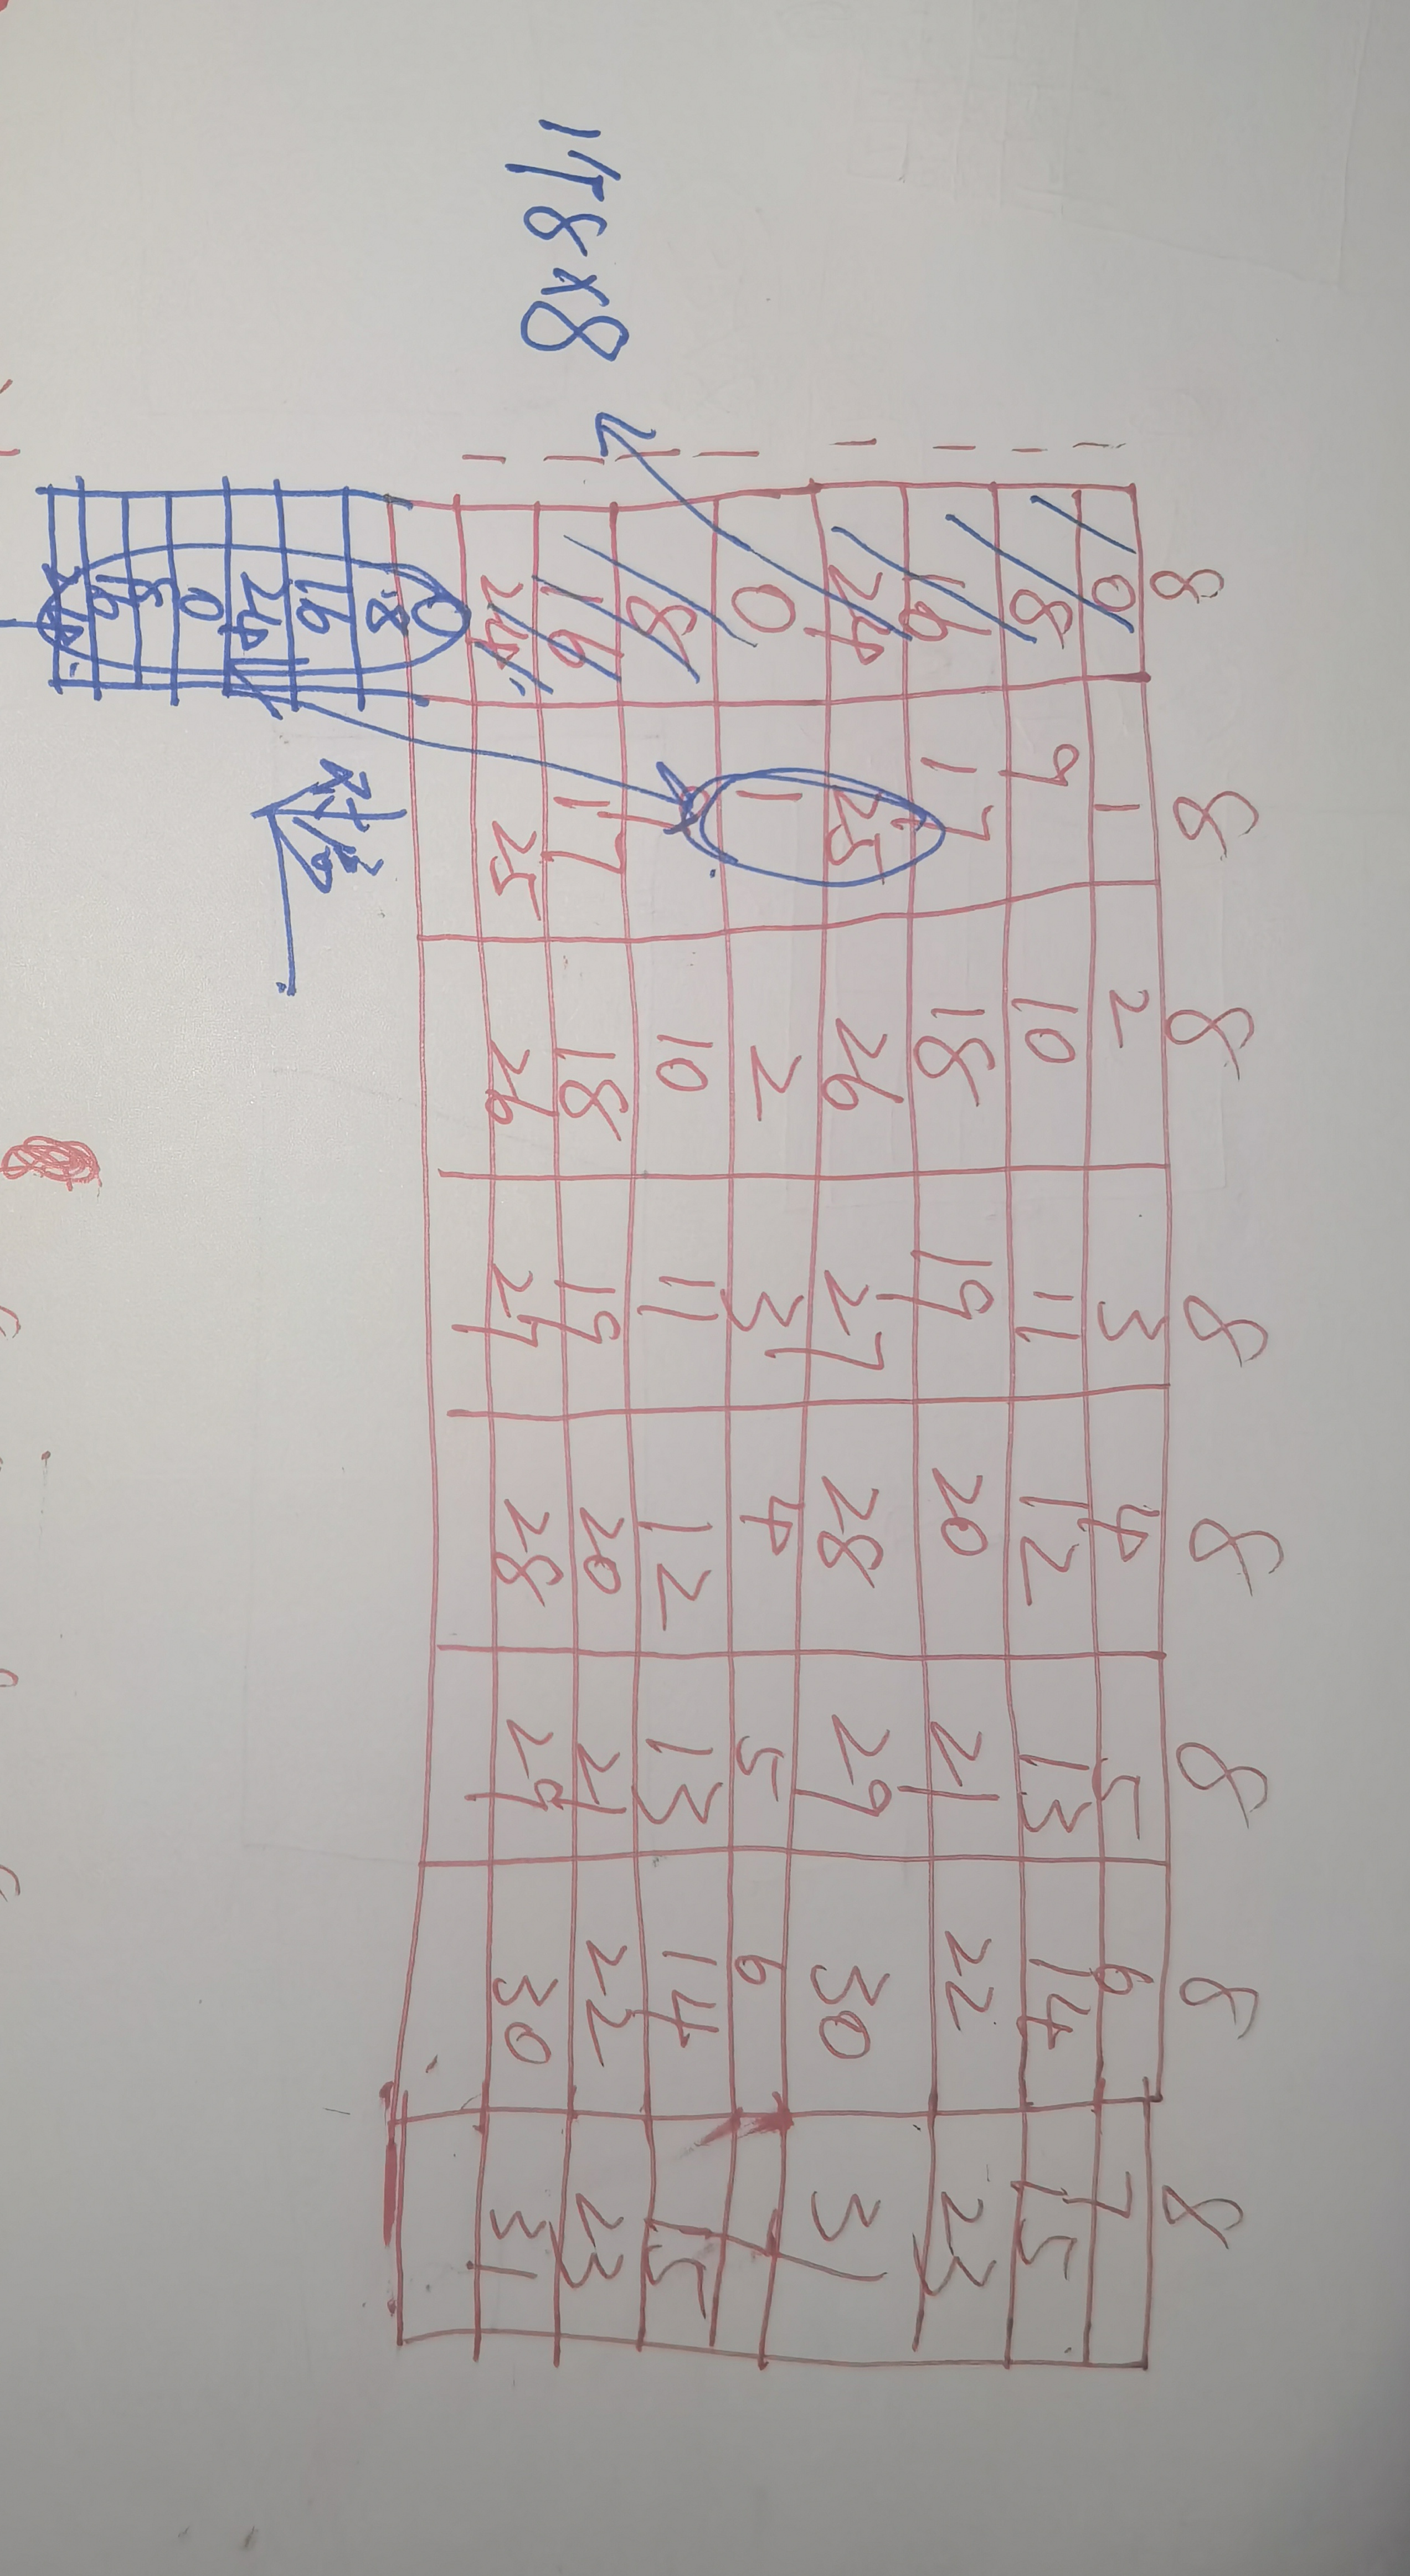 8 8 8 8 8 8 8 8
0 1 2 3 4 5 6 7
8 9 10 11 12 13 14 15
16 17 18 19 20 21 22 23
24 25 26 27 28 29 30 31
0 1 2 3 4 5 6 7
1个8×8
8 9 10 11 12 13 14 15
16 17 18 19 20 21 22 23
24 25 26 27 28 29 30 31
0
8
16
24
0
8
16
24